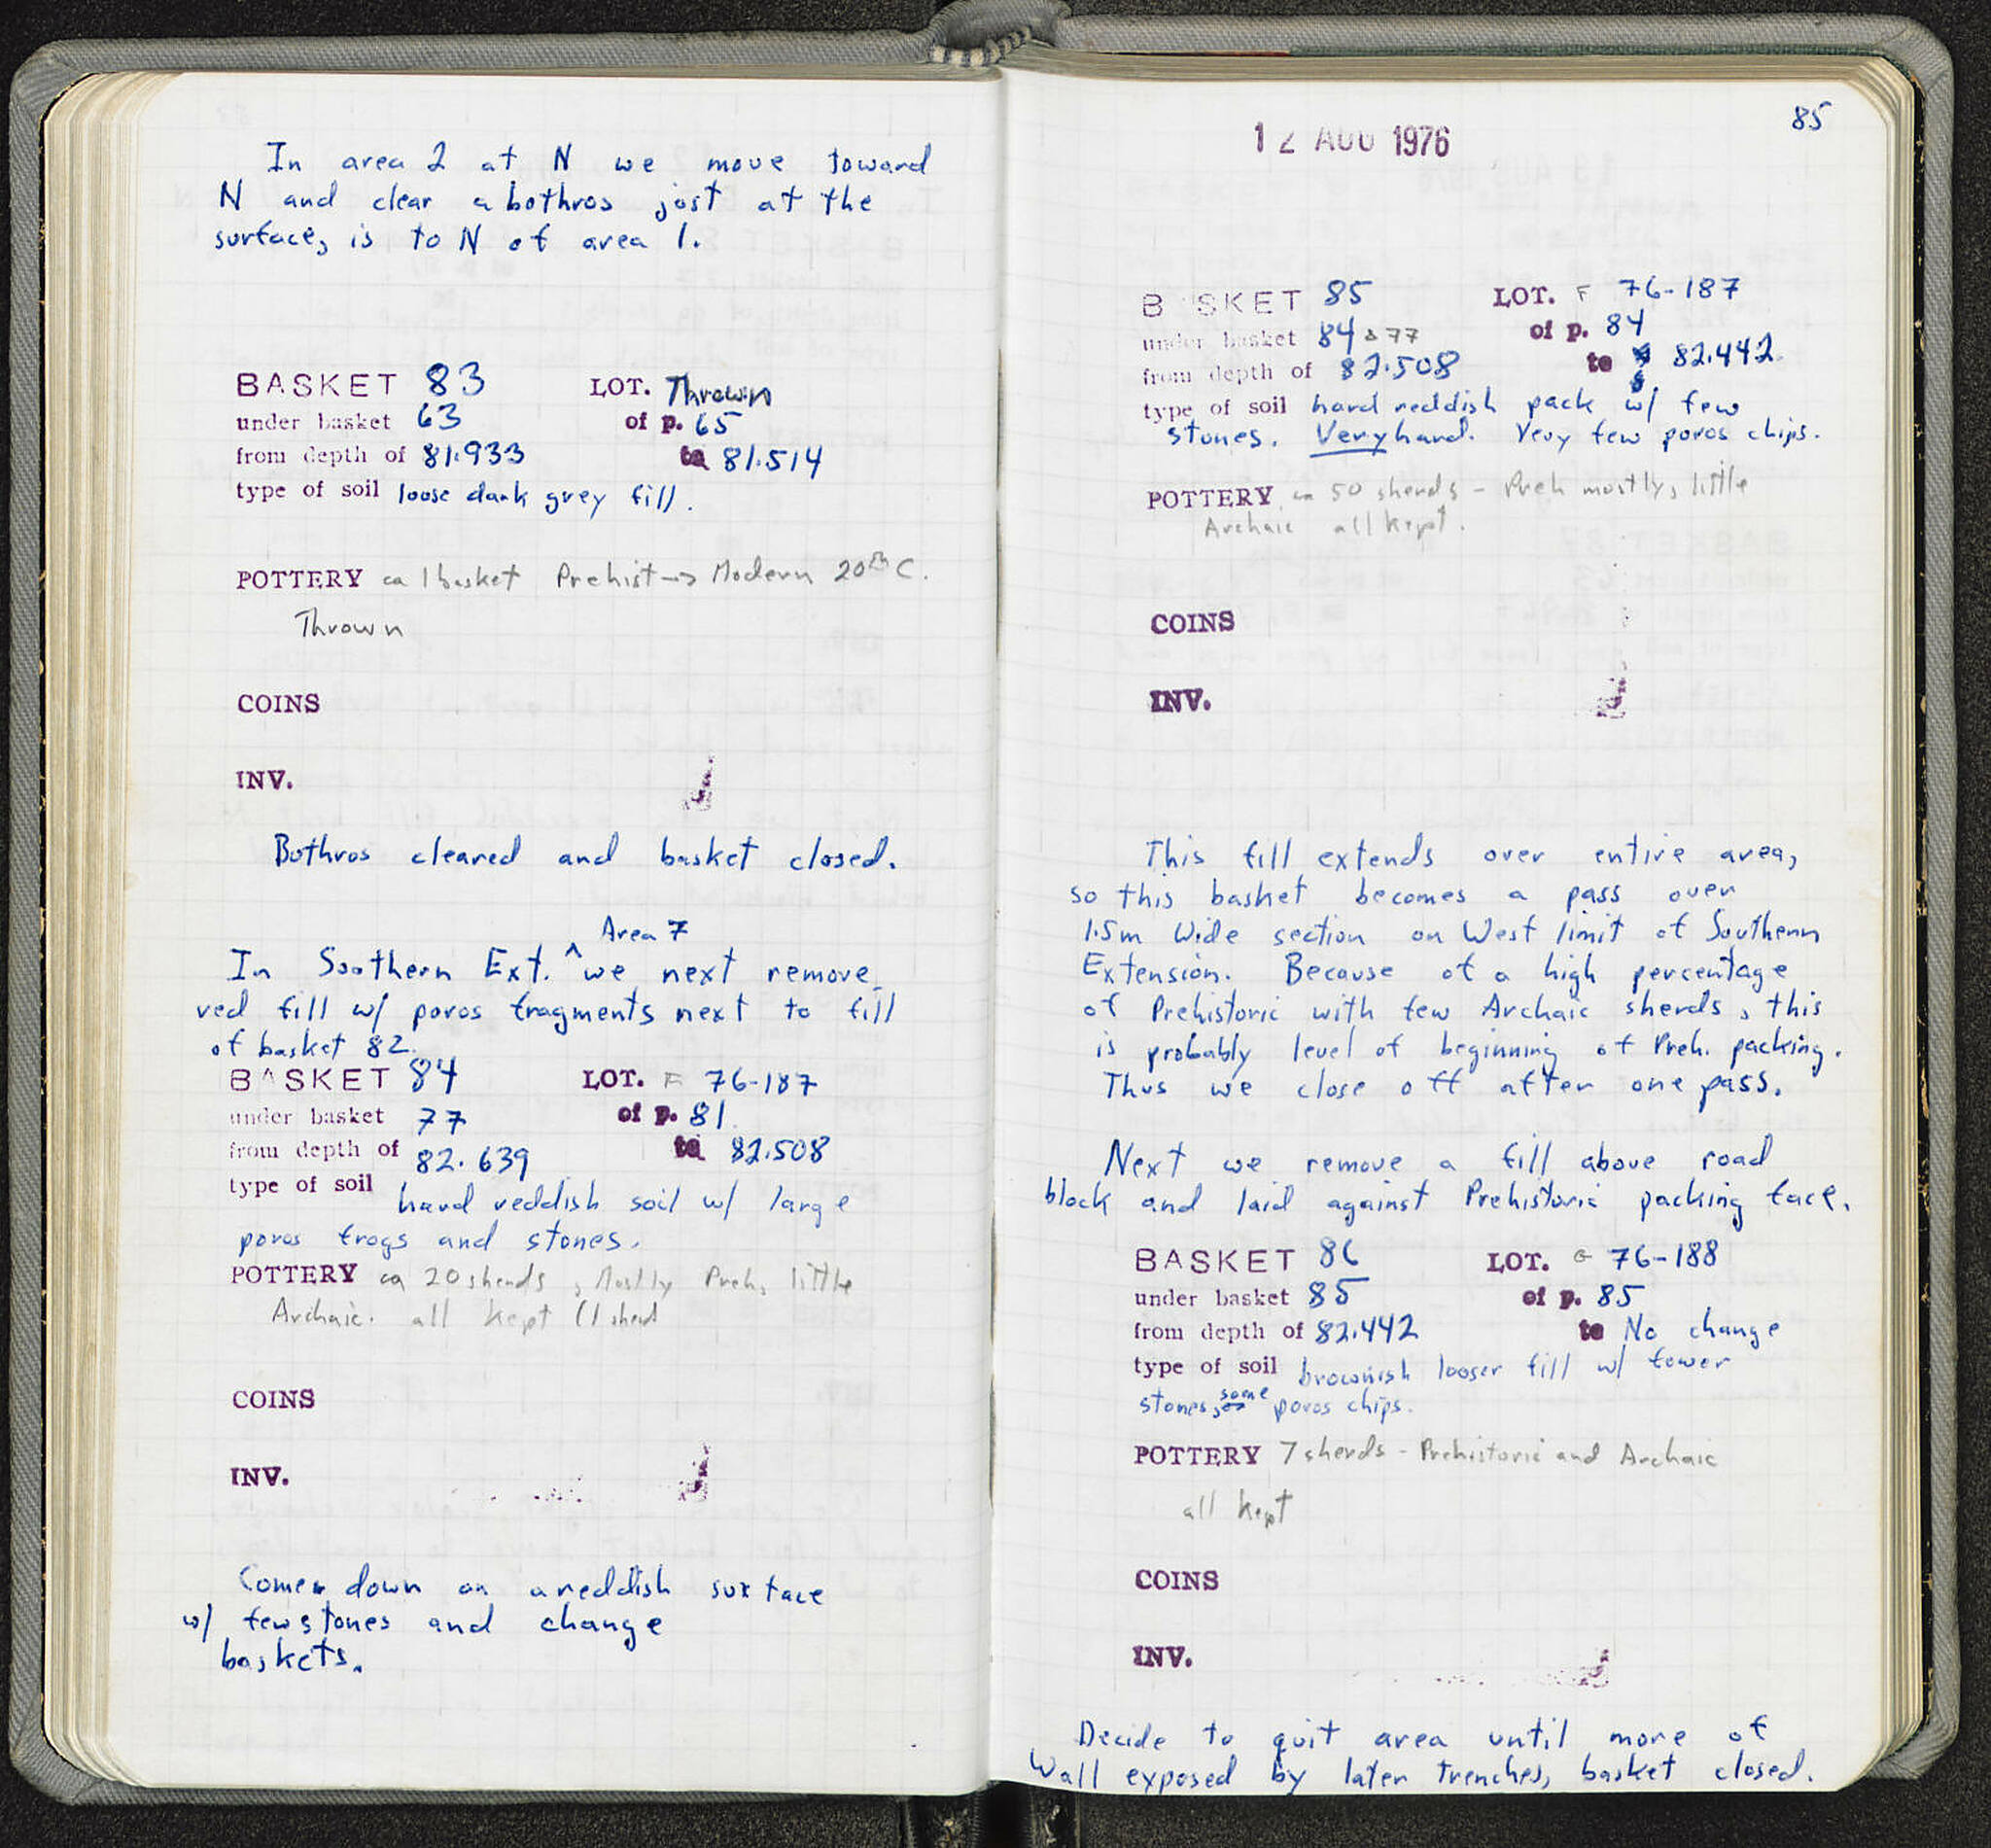 In area 2 at N we move toward
N and clear a bothros just at the
surface, is to N of area 1.
BASKET 83 LOT. Thrown
under basket 63 of p. 65
from depth of 81.933 to 81.514
type of soil loose dark grey fill.
POTTERY ca 1 basket Prehist → Modern 20th C.
Thrown
COINS
INV.
Bothros cleared and basket closed.
Area 7
In Southern Ext. ^ we next remove
red fill w/ poros fragments next to fill
of basket 82.
BASKET 84 LOT. F 76-187
under basket 77 of p. 81
from depth of 82.639 to 82.508
type of soil hard reddish soil w/ large
poros frags and stones.
POTTERY ca 20 sherds, Mostly Preh, little
Archaic. all kept (1 sherd
COINS
INV.
Come down on a reddish surface
w/ few stones and change
baskets.
85
12 AUG 1976
BASKET 85 LOT. F 76-187
under basket 84 & 77 of p. 84
from depth of 82.508 to 82.442
type of soil hard reddish pack w/ few
stones. Very hard. Very few poros chips.
POTTERY ca 50 sherds - Preh mostly, little
Archaic all kept.
COINS
INV.
This fill extends over entire area,
so this basket becomes a pass over
1.5m wide section on West limit of Southern
Extension. Because of a high percentage
of Prehistoric with few Archaic sherds, this
is probably level of beginning of Preh. packing.
Thus we close off after one pass.
Next we remove a fill above road
block and laid against Prehistoric packing face.
BASKET 86 LOT. G 76-188
under basket 85 of p. 85
from depth of 82.442 to No change
type of soil brownish looser fill w/ fewer
stones, some poros chips.
POTTERY 7 sherds - Prehistoric and Archaic
all kept
COINS
INV.
Decide to quit area until more of
Wall exposed by later trenches, basket closed.